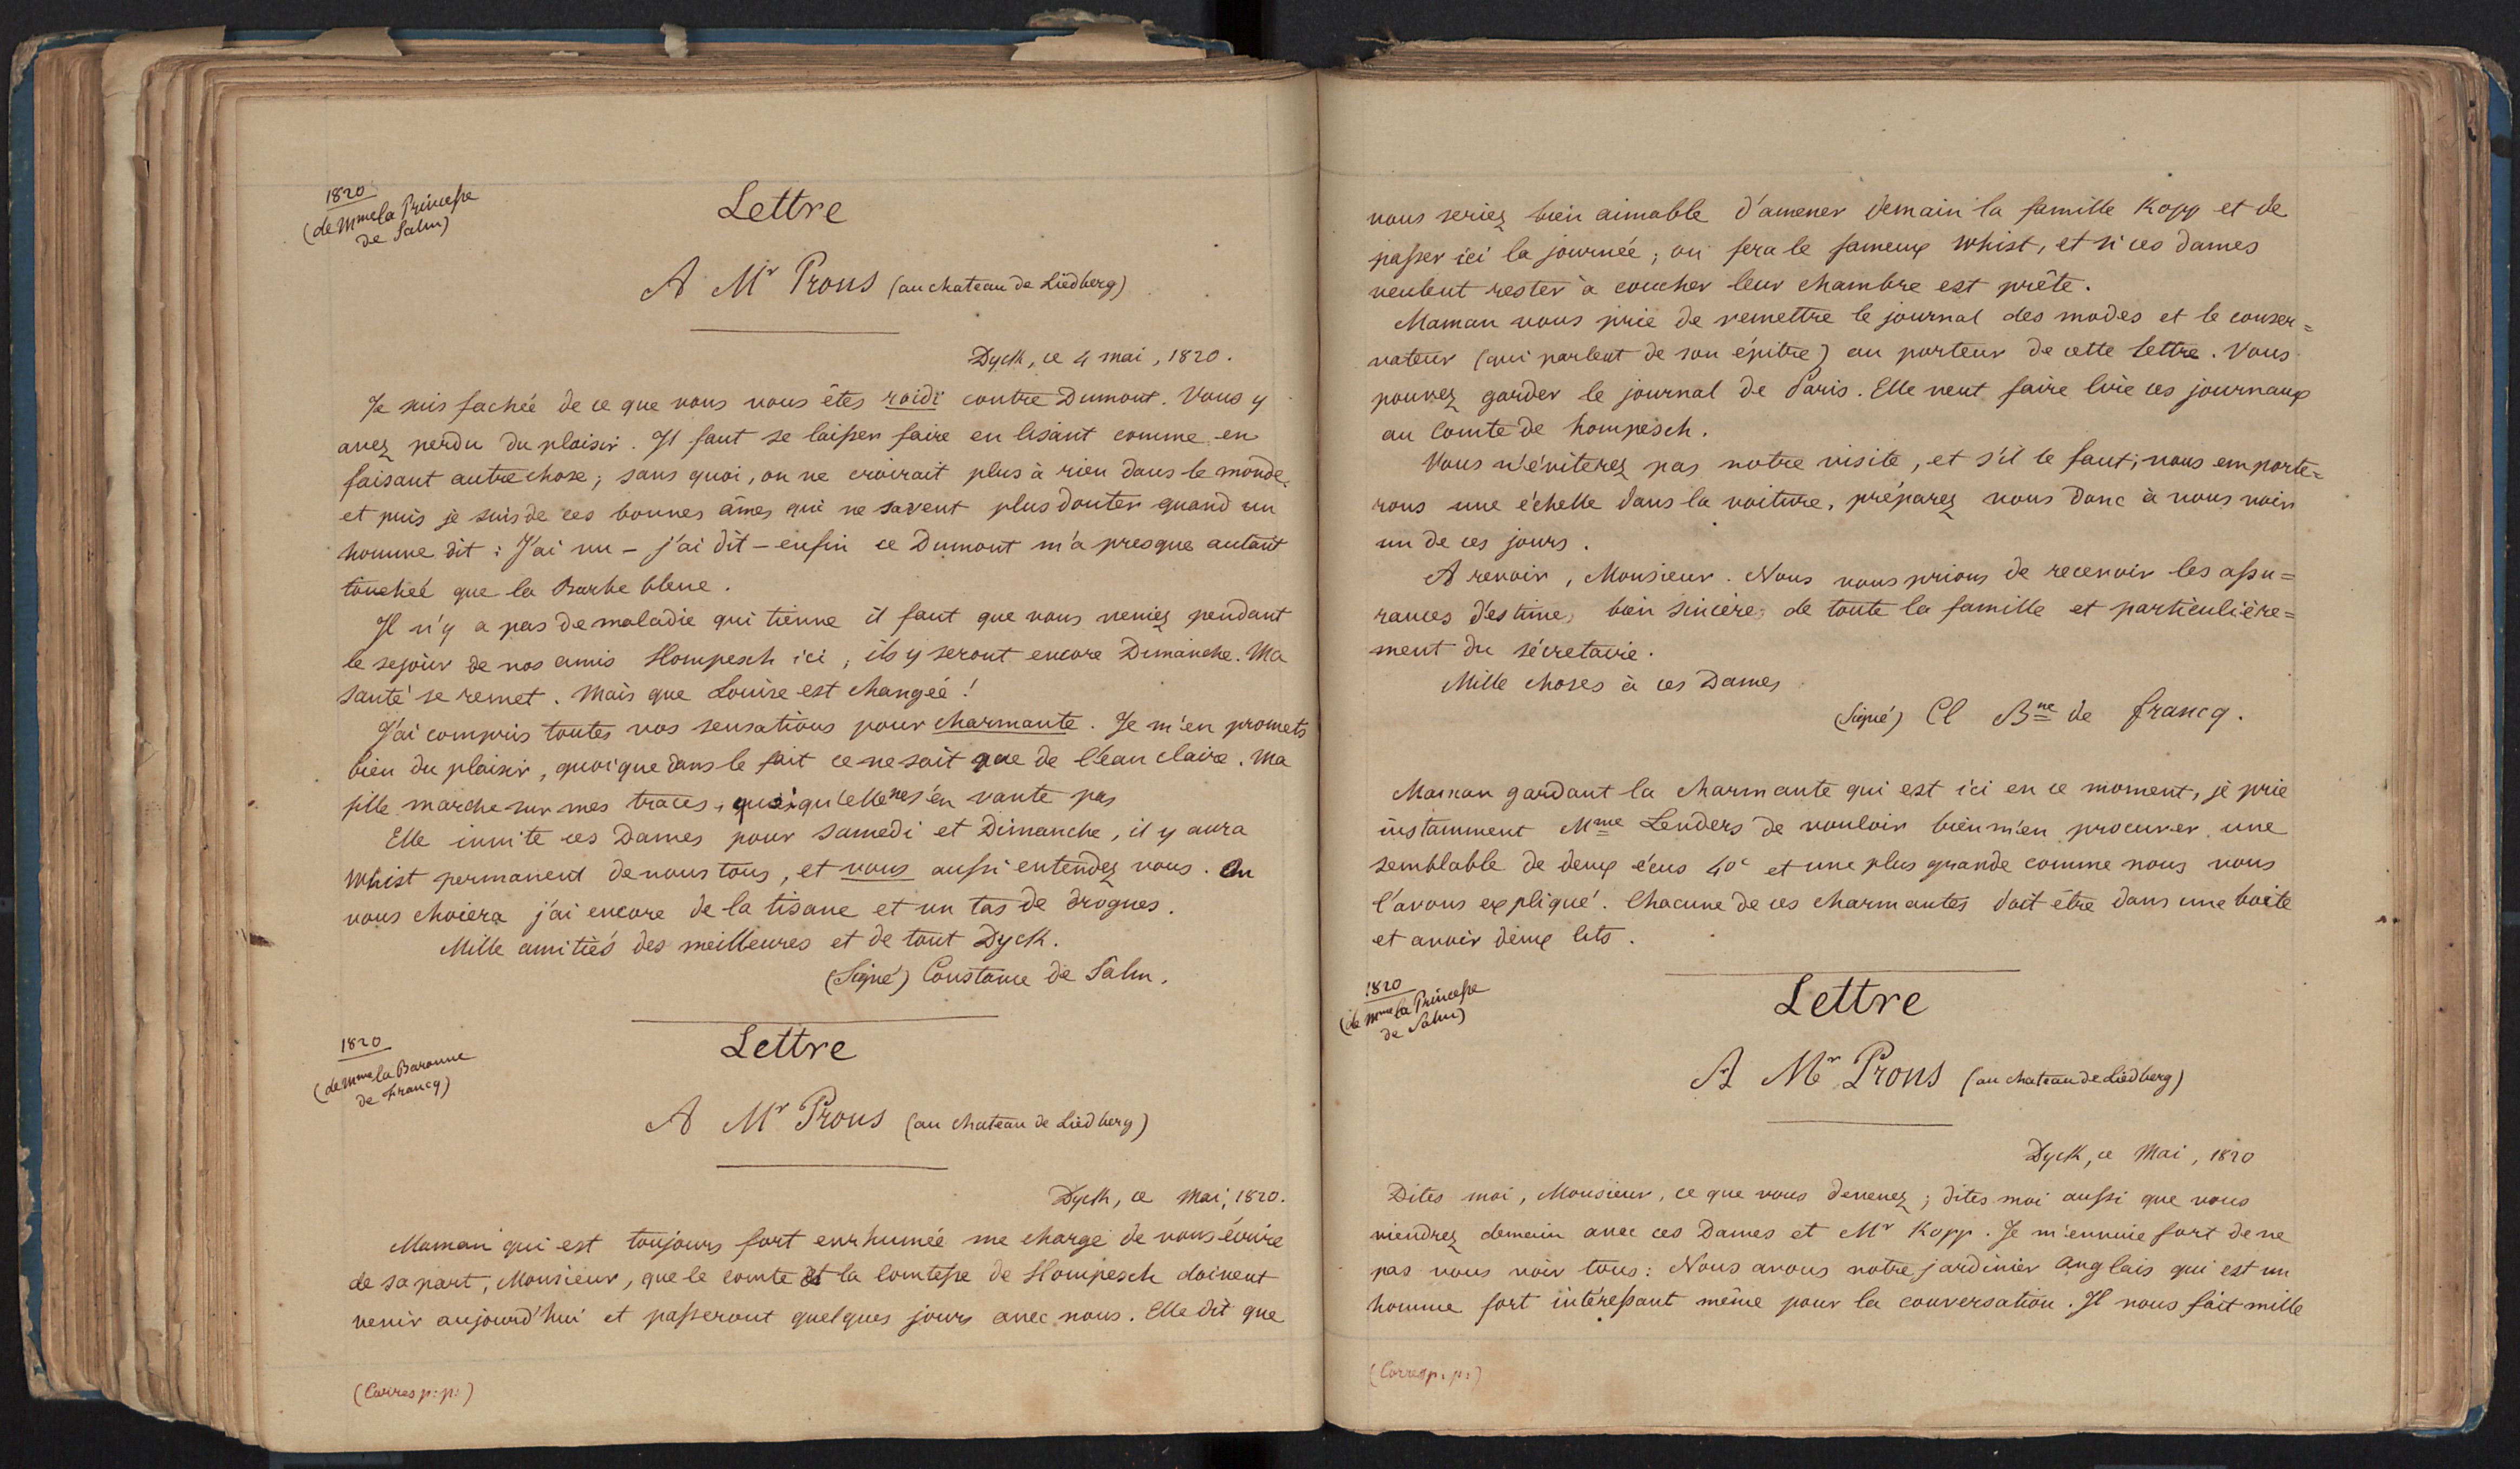 1820
(de Mme la Princesse
de Salm)
Lettre
A Mr Prous (au chateau de Liedberg)
Dyck, ce 4 mai, 1820.
Je suis fachée de ce que vous vous êtes roidi contre Dumont. Vous y
avez perdu du plaisir. Il faut se laisser faire en lisant comme en
faisant autre chose; sans quoi, on ne croirait plus à rien dans le monde,
et puis je suis de ces bonnes âmes qui ne savent plus douter quand un
homme dit : J'ai vu – j'ai dit – enfin ce Dumont m'a presque autant
touchée que la Barbe bleue.
Il n'y a pas de maladie qui tienne il faut que vous veniez pendant
le sejour de nos amis Hompesch ici, ils y seront encore Dimanche. Ma
santé se remet. Mais que Louise est changée !
J'ai compris toutes vos sensations pour charmante. Je m'en promets
bien du plaisir, quoique dans le fait ce ne soit que de l'eau claire. Ma
fille marche sur mes traces, quoiqu'elle ne s'en vante pas
Elle invite ces Dames pour samedi et Dimanche, il y aura
Whist permanent de nous tous, et vous aussi entendez vous. On
vous choiera j'ai encore de la tisane et un tas de drogues.
Mille amitiés des meilleures et de tout Dyck.
(Signé) Constance de Salm.
1820
(de Mme la Baronne
de Francq)
Lettre
A Mr Prous (au chateau de Liedberg)
Dyck, ce Mai, 1820.
Maman qui est toujours fort enrhumée me charge de vous écrire
de sa part, Monsieur, que le comte et la comtesse de Hompesch doivent
venir aujourd'hui et passeront quelques jours avec nous. Elle dit que
(Corresp: p:)
vous seriez bien aimable d'amener demain la famille Kopp et de
passer ici la journée; on fera le fameux Whist, et si ces dames
veulent rester à coucher leur chambre est prête.
Maman vous prie de remettre le journal des modes et le conser=
vateur (qui parlent de son épitre) au porteur de cette lettre. Vous
pouvez garder le journal de Paris. Elle veut faire lire ces journaux
au Comte de hompesch.
Vous n'éviterez pas notre visite, et s'il le faut, nous emporte=
rons une échelle dans la voiture, préparez vous donc à nous voir
un de ces jours.
A revoir, Monsieur. Nous vous prions de recevoir les assu=
rances d'estime, bien sincère, de toute la famille et particulière=
ment du sécretaire.
Mille choses à ces Dames
(Signé) Cl Bne de francq.
Maman gardant la charmante qui est ici en ce moment, je prie
instamment Mme Lenders de vouloir bien m'en procurer une
semblable de deux écus 40c et une plus grande comme nous vous
l'avons expliqué. Chacune de ces charmantes doit être dans une boite
et avoir deux lits.
1820
(de Mme la Princesse
de Salm)
Lettre
A Mr Prous (au chateau de Liedberg)
Dyck, ce Mai, 1820
Dites moi, Monsieur, ce que vous devenez; dites moi aussi que vous
viendrez demain avec ces Dames et Mr Kopp. Je m'ennuie fort de ne
pas vous voir tous: Nous avons notre jardinier Anglais qui est un
homme fort intéressant même pour la conversation. Il nous fait mille
(Corresp. p:)